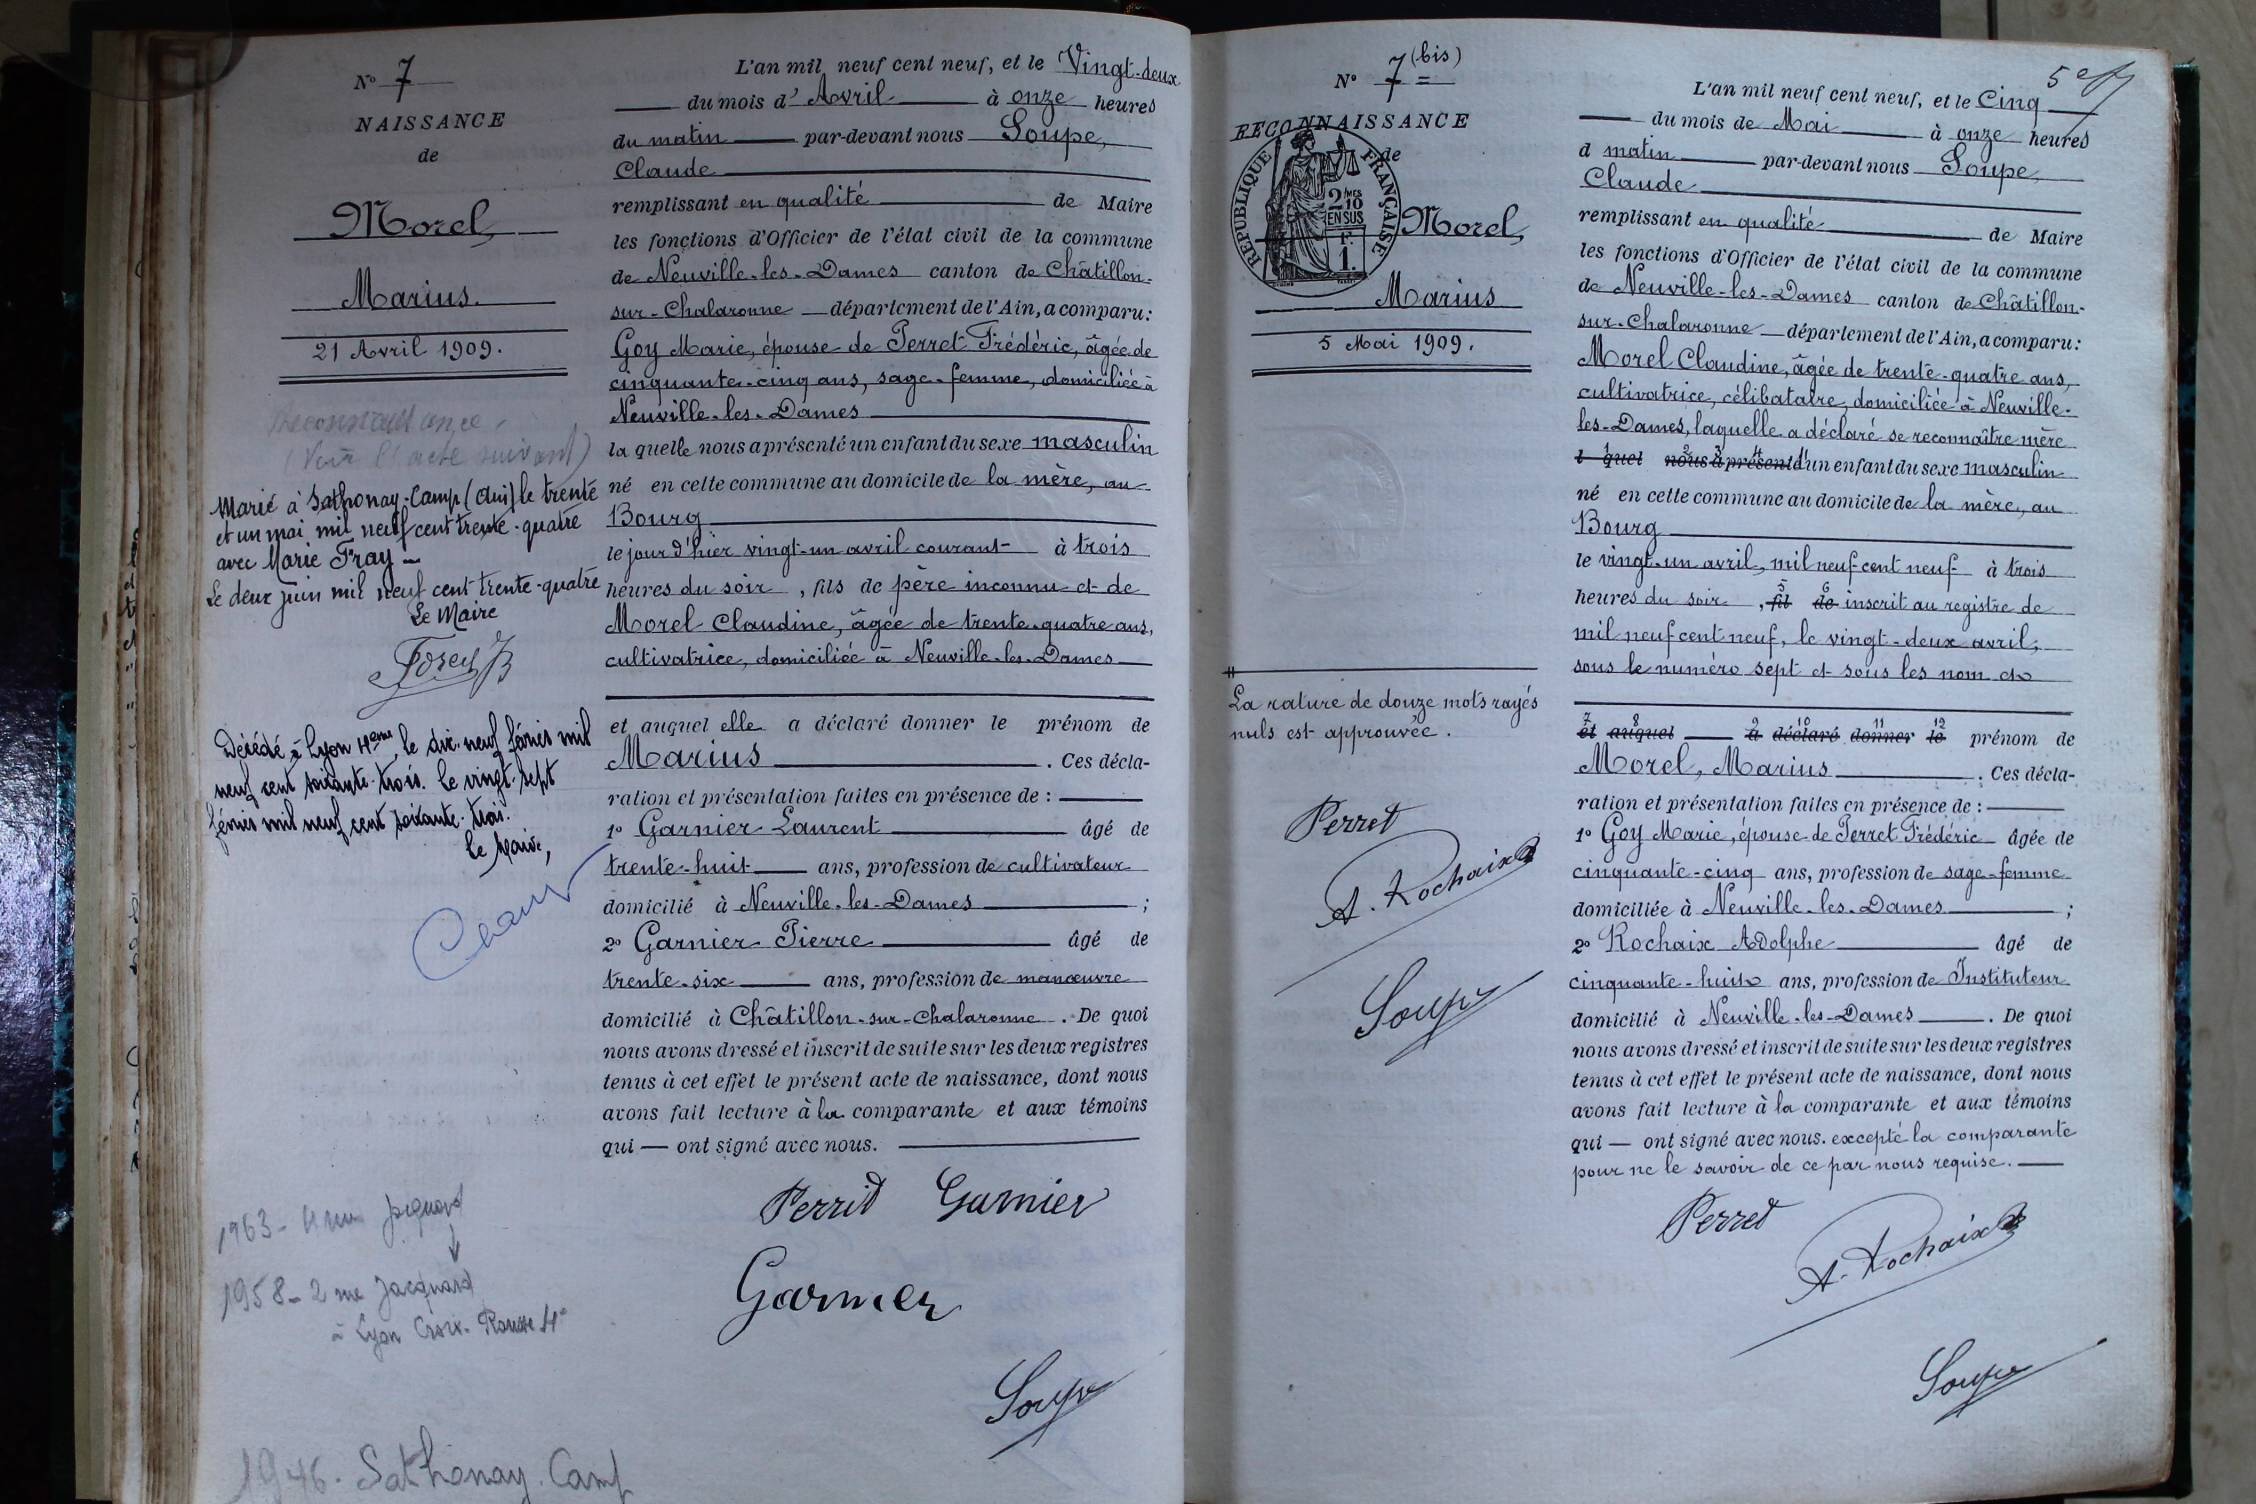 N° 7
NAISSANCE
de
Morel
Marius
21 Avril 1909.
Reconnaissance
(Voir l'acte suivant)
Marié à Sathonay-Camp (Ain) le trente
et un mai mil neuf cent trente-quatre
avec Marie Fray
Le deux juin mil neuf cent trente-quatre
Le Maire
Décédé à Lyon 4ème, le dix-neuf février mil
neuf cent soixante-trois. Le vingt-sept
février mil neuf cent soixante-trois.
le Maire,
1963 -
1958 - 2 rue Jacquard
à Lyon Croix-Rousse 4e
1946. Sathonay-Camp
L'an mil neuf cent neuf, et le Vingt-deux
du mois d'Avril à onze heures
du matin par-devant nous Soupe,
Claude
remplissant en qualité de Maire
les fonctions d'Officier de l'état civil de la commune
de Neuville-les-Dames canton de Châtillon-
sur-Chalaronne département de l'Ain, a comparu:
Goy Marie, épouse de Perret Frédéric, âgée de
cinquante-cinq ans, sage-femme, domiciliée à
Neuville-les-Dames
laquelle nous a présenté un enfant du sexe masculin
né en cette commune au domicile de la mère, au
Bourg
le jour d'hier vingt-un avril courant à trois
heures du soir, fils de père inconnu et de
Morel Claudine, âgée de trente-quatre ans,
cultivatrice, domiciliée à Neuville-les-Dames
et auquel elle a déclaré donner le prénom de
Marius. Ces décla-
ration et présentation faites en présence de :
1° Garnier Laurent âgé de
trente-huit ans, profession de cultivateur
domicilié à Neuville-les-Dames ;
2° Garnier Pierre âgé de
trente-six ans, profession de manœuvre
domicilié à Châtillon-sur-Chalaronne. De quoi
nous avons dressé et inscrit de suite sur les deux registres
tenus à cet effet le présent acte de naissance, dont nous
avons fait lecture à la comparante et aux témoins
qui — ont signé avec nous.
Perret Garnier
Garnier
Soupe
N° 7 (bis)
RECONNAISSANCE
de
REPUBLIQUE FRANÇAISE
2 MES
10
EN SUS
F.
1.
Morel
Marius
5 Mai 1909.
La rature de douze mots rayés
nuls est approuvée.
Perret
A. Rochaix
Soupe
5e
L'an mil neuf cent neuf, et le Cinq
du mois de Mai à onze heures
d matin par-devant nous Soupe
Claude
remplissant en qualité de Maire
les fonctions d'Officier de l'état civil de la commune
de Neuville-les-Dames canton de Châtillon-
sur-Chalaronne département de l'Ain, a comparu:
Morel Claudine, âgée de trente-quatre ans,
cultivatrice, célibataire, domiciliée à Neuville-
les-Dames, laquelle a déclaré se reconnaître mère
1 2 3 4
l quel nous a présenté d'un enfant du sexe masculin
né en cette commune au domicile de la mère, au
Bourg
le vingt-un avril, mil neuf cent neuf à trois
5 6
heures du soir, fil de inscrit au registre de
mil neuf cent neuf, le vingt-deux avril,
sous le numéro sept et sous les nom et
7 8 9 10 11 12
et auquel a déclaré donner le prénom de
Morel, Marius. Ces décla-
ration et présentation faites en présence de :
1° Goy Marie, épouse de Perret Frédéric âgée de
cinquante-cinq ans, profession de sage-femme
domiciliée à Neuville-les-Dames ;
2° Rochaix Adolphe âgé de
cinquante-huit ans, profession de Instituteur
domicilié à Neuville-les-Dames. De quoi
nous avons dressé et inscrit de suite sur les deux registres
tenus à cet effet le présent acte de naissance, dont nous
avons fait lecture à la comparante et aux témoins
qui — ont signé avec nous. excepté la comparante
pour ne le savoir de ce par nous requise.
Perret
A. Rochaix
Soupe